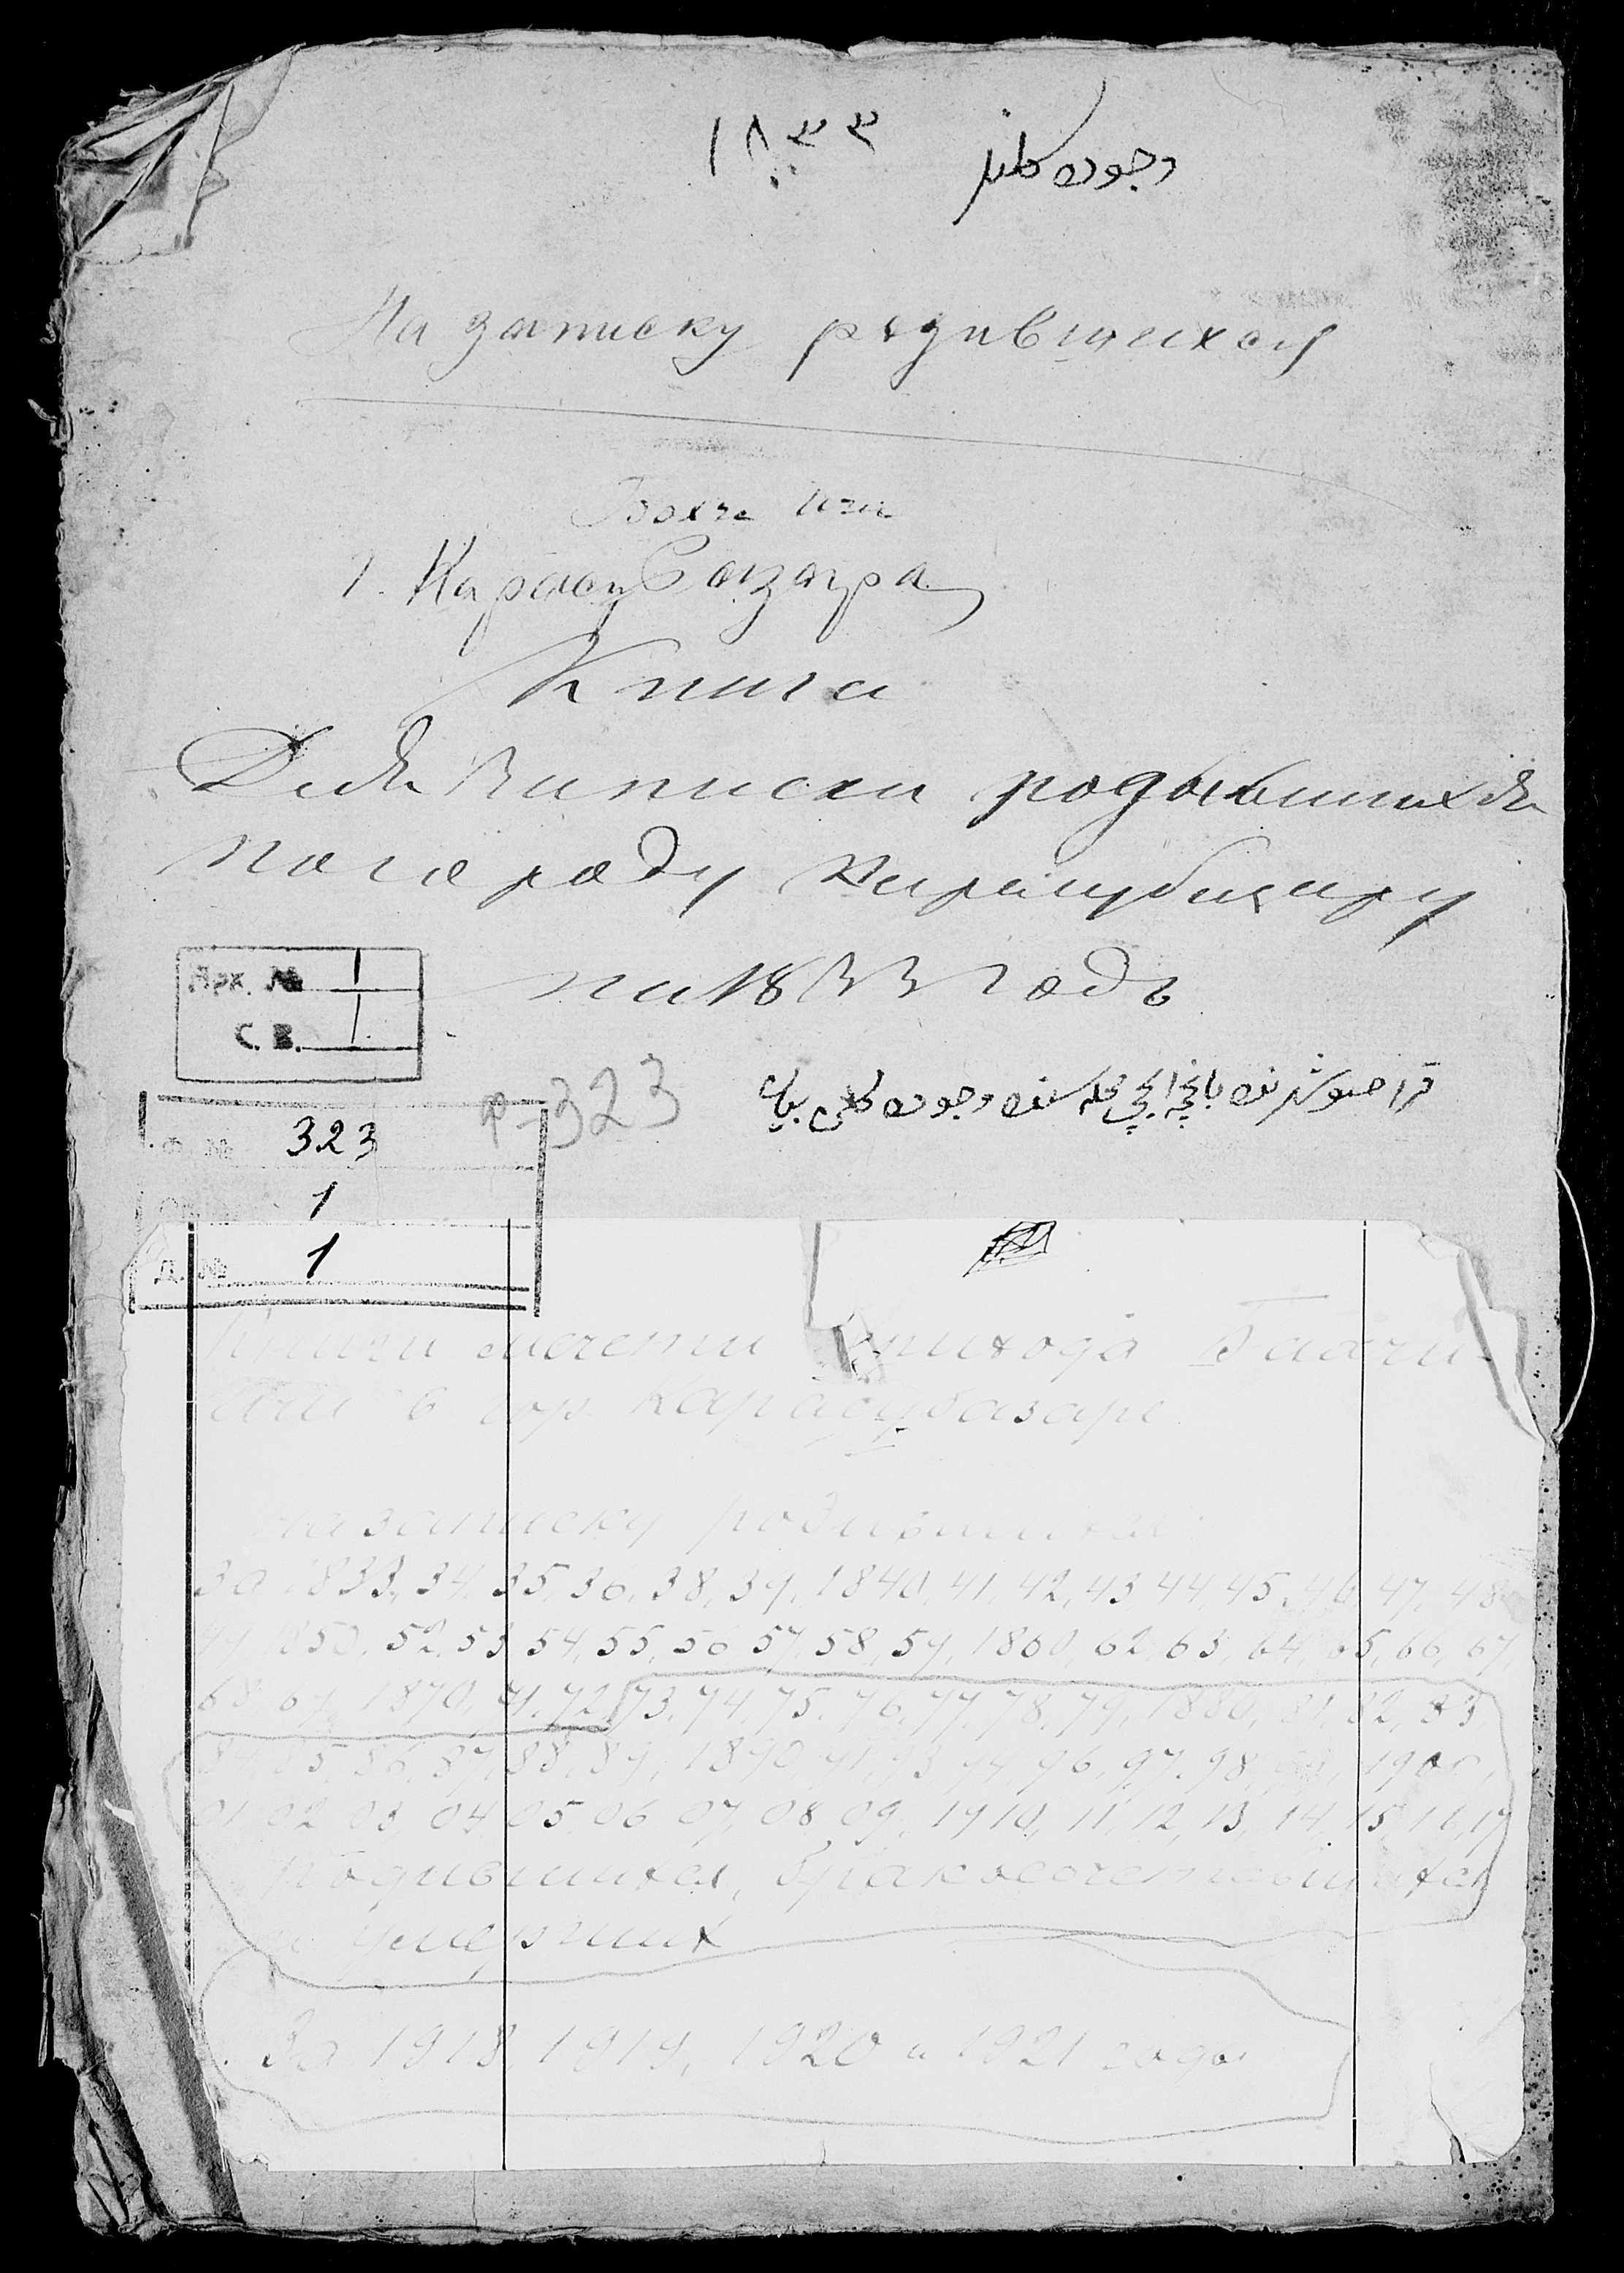 ١٨٣٣ وجوده كلنلر
На записку родившихся
Бахче Ичи
1. Карасубазара
Книга
Для Записки родывшихся
погороду Карасубазару
на 1833 годъ
Арк. № 1
С. В. 1
р-323
قرا صو بازارنده باغچه ایچی محله سنده وجوده كلن
Ф. № 323
1
Д. № 1
Книги мечети прихода Бахчи-
Ичи в гор. Карасубазаре
на записку родившихся
За 1833, 34, 35, 36, 38, 39, 1840, 41, 42, 43, 44, 45, 46, 47, 48
49, 1850, 52, 53, 54, 55, 56, 57, 58, 59, 1860, 62, 63, 64, 65, 66, 67,
68, 69, 1870, 71, 72, 73, 74, 75, 76, 77, 78, 79, 1880, 81, 82, 83
84, 85, 86, 87, 88, 89, 1890, 91, 93, 94, 96, 97, 98, 99, 1900,
01 02 03 04 05 06 07, 08, 09, 1910, 11, 12, 13, 14, 15, 16, 17
Родившихся, бракосочетавшихся
и умерших
За 1918 1919, 1920 и 1921 годы